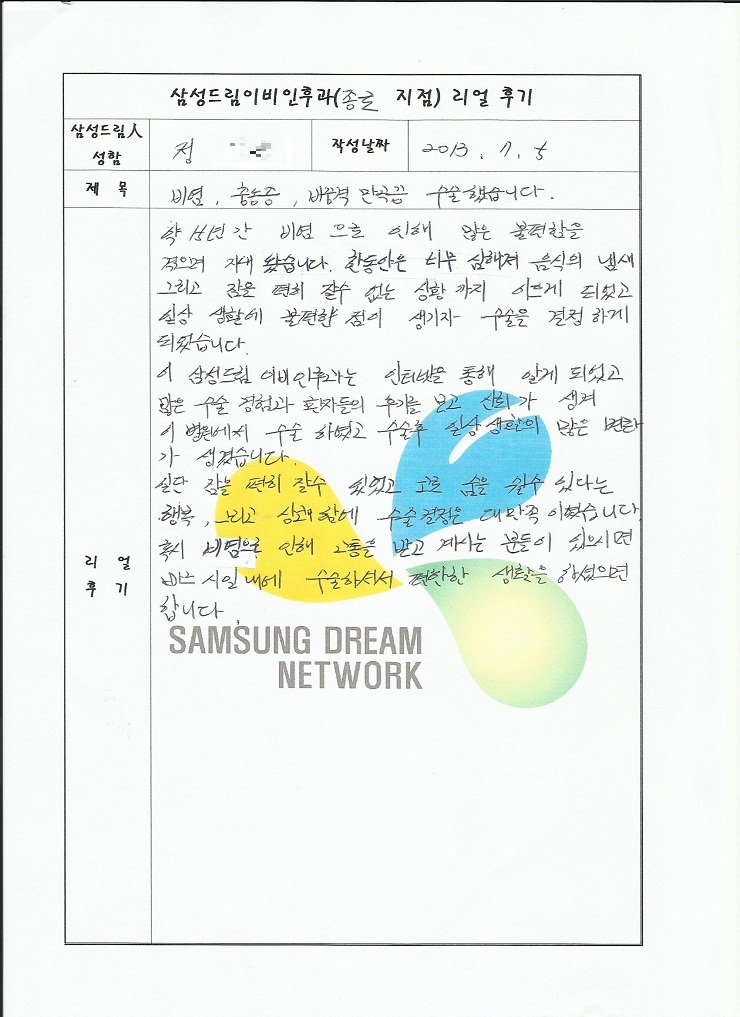 삼성드림이비인후과(종로 지점) 리얼 후기
삼성드림人 성함
정
작성날짜
2013. 7. 5
제 목
비염, 축농증, 비중격 만곡증 수술했습니다.
리 얼 후 기
약 년간 비염 으로 인해 많은 불편함을
겪으며 지내 왔습니다. 한동안은 너무 심해져 음식의 냄새
그리고 잠을 편히 잘수 없는 상황 까지 이르게 되었고
일상 생활에 불편한 점이 생기자 수술을 결정 하게
되었습니다.
이 삼성드림 이비인후과는 인터넷을 통해 알게 되었고
많은 수술 경험과 환자들의 후기를 보고 신뢰가 생겨
이 병원에서 수술 하였고 수술후 일상생활의 많은 변화
가 생겼습니다.
일단 잠을 편히 잘수 있었고 코로 숨을 쉴수 있다는
행복, 그리고 상쾌함에 수술결정은 대만족 이였습니다.
혹시 비염으로 인해 고통을 받고 계시는 분들이 있으시면
빠른 시일내에 수술하셔서 편안한 생활을 하셨으면
합니다.
SAMSUNG DREAM
NETWORK